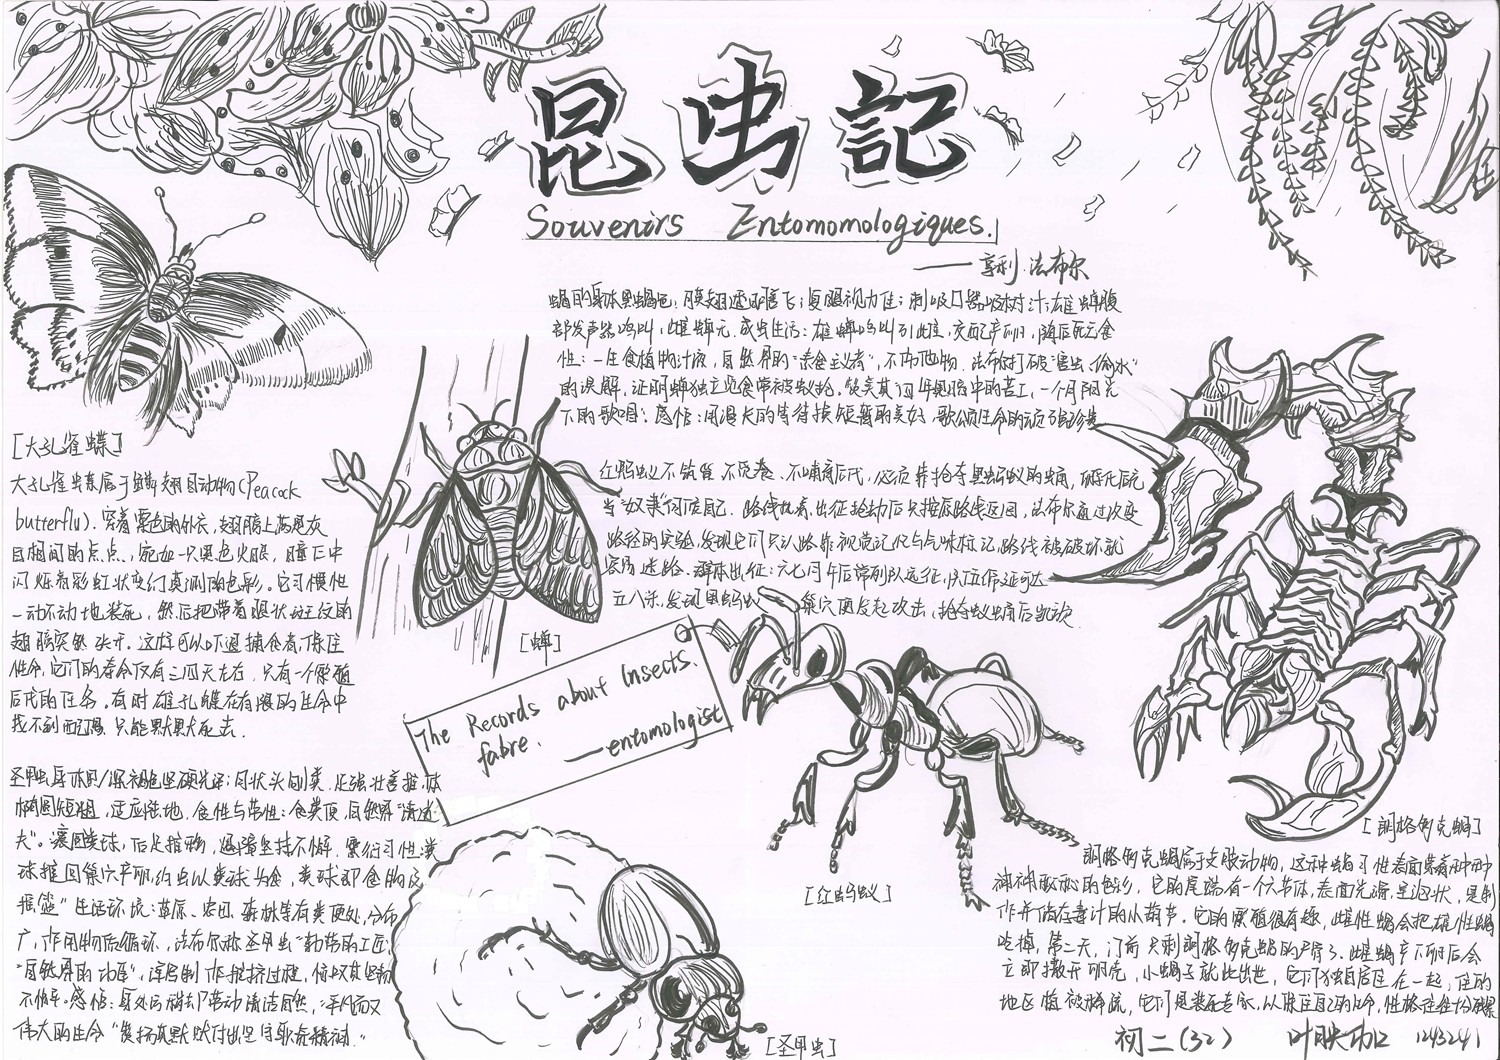 昆虫記
Souvenirs Entomomologiques.
——亨利·法布尔
部发声器鸣叫,雌蝉无。成虫生活:雄蝉鸣叫引雌,交配产卵,随后死亡食
性:一生食植物汁液,自然界的"素食主义者",不伤他物.法布尔打破"害虫、偷水"
的误解,证明蝉独立觅食常被蚁抢。
下的歌唱;感悟:用漫长的等待换短暂的美好,歌颂生命的顽强
[大孔雀蝶]
大孔雀蝶属于鳞翅目动物(Peacock
butterfly).穿着栗色的外衣,翅膀上满是灰
白相间的点点,宛如一只黑色火眼,瞳仁中
闪烁着彩虹状变幻莫测的色彩。它习惯性
一动不动地装死,然后把带着眼状斑纹的
翅膀突然张开。这样可以吓退捕食者,保住
性命,它们的寿命仅有三四天左右,只有一个繁殖
后代的任务。有时雄孔雀蝶在有限的生命中
找不到配偶,只能默默死去.
红蚂蚁不筑巢、不觅食、不哺育后代,必须靠抢夺黑蚂蚁的蛹,孵化后充
当"奴隶"伺候自己.路线执着,出征抢劫后只按原路线返回,法布尔通过改变
路径的实验,发现它们只认路靠视觉记忆与气味标记,路线被破坏就
容易迷路.群体出征:六七月午后常列队远征,队伍绵延可达
五八米,发现黑蚂蚁巢穴便发起攻击,抢夺蚁蛹后凯旋
[蝉]
The Records about Insects.
fabre. ——entomologist
圣甲虫身体黑/深褐色坚硬光泽;月状头似粪,足强壮善推,体
椭圆短粗,适应陆地.食性与常性:食粪便,自然界"清道
夫"。滚圆粪球,后足推物,遇障坚持不懈.繁衍习性:粪
球推回巢穴产卵,幼虫以粪球为食,粪球即食物及
摇篮"生活环境:草原、农田、森林等有粪便处,分布
广,作用物质循环.法布尔称圣甲虫"勤劳的工匠;
不懈。感悟:身处污秽却带动清洁自然,平凡而又
伟大的生命"
[圣甲虫]
[红蚂蚁]
[朗格多克蝎]
朗格多克蝎属于支肢动物,这种蝎习性表面紫着种种
神神秘秘的色彩,它的尾端有一个六节体,表面光滑,呈泡状,是制
作并储存毒汁的小葫芦.它的繁殖很有趣,雌性蝎会把雄性蝎
吃掉,第二天,门前只剩朗格多克蝎的尸骨了.雌蝎产下卵后会
立即撒开卵壳,小蝎子就此出世,它们独自居住在一起,住的
地区植被稀疏,
初二(32) 叶映 1243241